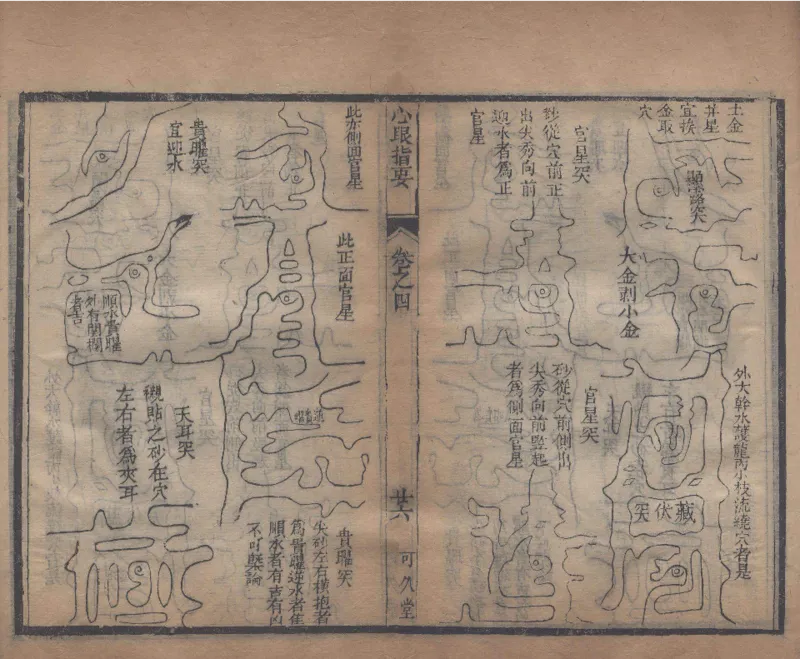 土金
井星
宜挨
金取
穴
顯露突
大金剋小金
外大幹水護龍兩小枝流繞穴者是
藏伏突
官星突
砂從穴前正
出尖秀向前
迎水者爲正
官星
官星突
砂從穴前側出
尖秀向前竪起
者爲側面官星
心眼指要
卷之四
廿六
可久堂
此左側面官星
此正面官星
貴曜突
尖砂左右橫抱者
爲貴曜逆水者隹
順水者有吉有凶
不可槩論
貴曜突
宜迎水
順水貴曜
外有関攔
者吉
天耳突
襯貼之砂在穴
左右者爲夾耳